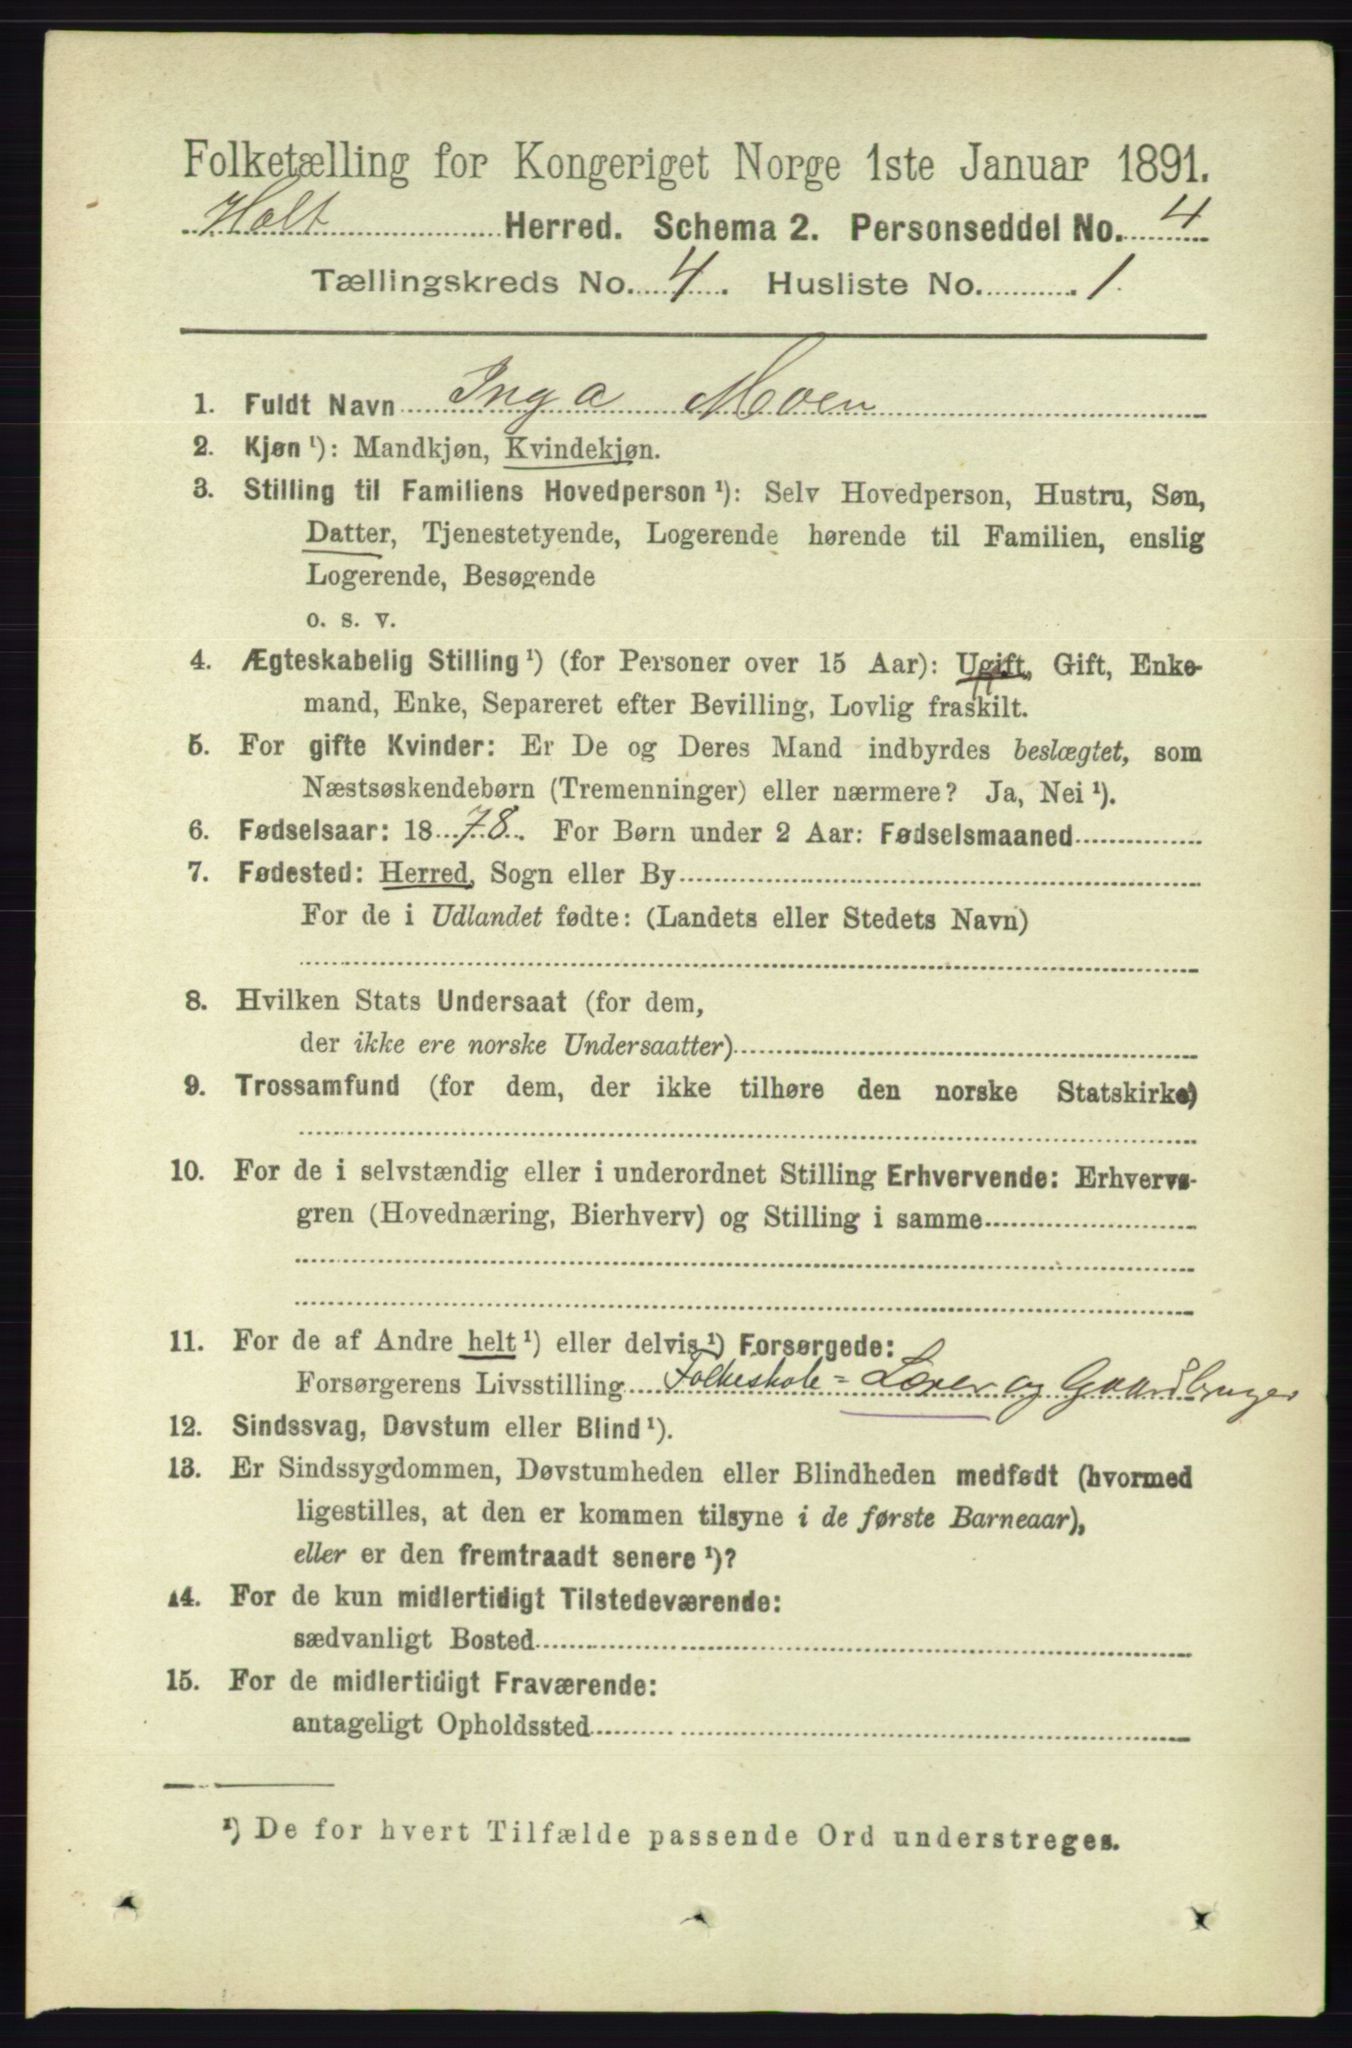 Folketælling for Kongeriget Norge 1ste Januar 1891.
Holt Herred. Schema 2. Personseddel No. 4
Tællingskreds No. 4. Husliste No. 1.
1. Fuldt Navn Inga Moen
2. Kjøn ¹): Mandkjøn, Kvindekjøn.
3. Stilling til Familiens Hovedperson ¹): Selv Hovedperson, Hustru, Søn,
Datter, Tjenestetyende, Logerende hørende til Familien, enslig
Logerende, Besøgende
o. s. v.
4. Ægteskabelig Stilling ¹) (for Personer over 15 Aar): Ugift, Gift, Enke-
mand, Enke, Separeret efter Bevilling, Lovlig fraskilt.
5. For gifte Kvinder: Er De og Deres Mand indbyrdes beslægtet, som
Næstsøskendebørn (Tremenninger) eller nærmere? Ja, Nei ¹).
6. Fødselsaar: 18 78. For Børn under 2 Aar: Fødselsmaaned
7. Fødested: Herred, Sogn eller By
For de i Udlandet fødte: (Landets eller Stedets Navn)
8. Hvilken Stats Undersaat (for dem,
der ikke ere norske Undersaatter)
9. Trossamfund (for dem, der ikke tilhøre den norske Statskirke)
10. For de i selvstændig eller i underordnet Stilling Erhvervende: Erhvervs-
gren (Hovednæring, Bierhverv) og Stilling i samme
11. For de af Andre helt ¹) eller delvis ¹) Forsørgede:
Forsørgerens Livsstilling Folkeskole = Lærer og Gaardbruger
12. Sindssvag, Døvstum eller Blind ¹).
13. Er Sindssygdommen, Døvstumheden eller Blindheden medfødt (hvormed
ligestilles, at den er kommen tilsyne i de første Barneaar),
eller er den fremtraadt senere ¹)?
14. For de kun midlertidigt Tilstedeværende:
sædvanligt Bosted
15. For de midlertidigt Fraværende:
antageligt Opholdssted
¹) De for hvert Tilfælde passende Ord understreges.